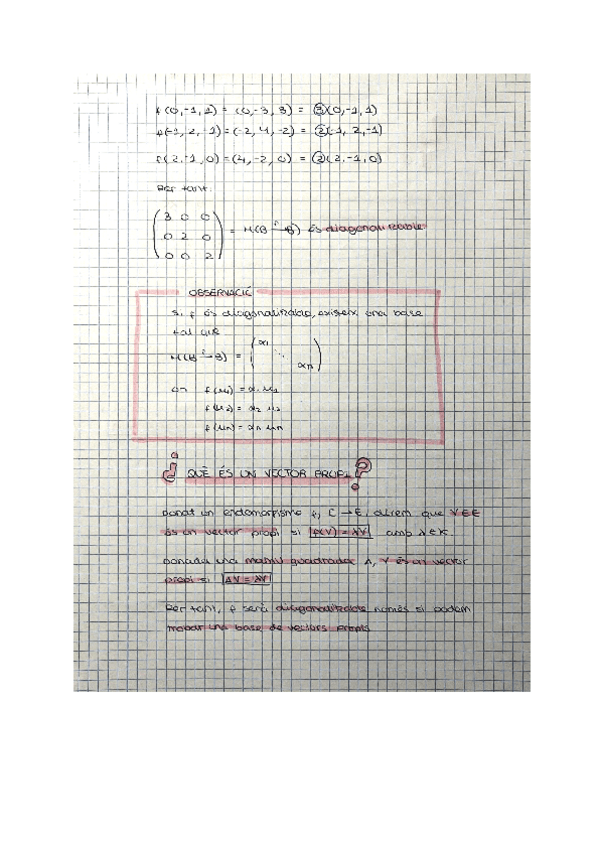 f(0,-1,1) = (0,-3,3) = 3(0,-1,1)
f(-1,2,-1) = (-2,4,-2) = 2(-1,2,-1)
f(2,-1,0) = (4,-2,0) = 2(2,-1,0)
Per tant:
(3 0 0
0 2 0
0 0 2) = M(B →f B) és diagonalitzable
OBSERVACIÓ
Si f és diagonalitzable, existeix una base
tal que
M(B →f B) = (α1 ⋱ αn)
on f(u1) = α1 u1
f(u2) = α2 u2
f(un) = αn un
¿ QUÈ ÉS UN VECTOR PROPI ?
Donat un endomorfisme f, E → E, direm que V∈E
és un vector propi si f(V) = λV amb λ∈K.
Donada una matriu quadrada A, V és un vector
propi si AV = λV
Per tant, f serà diagonalitzable només si podem
trobar una base de vectors propis